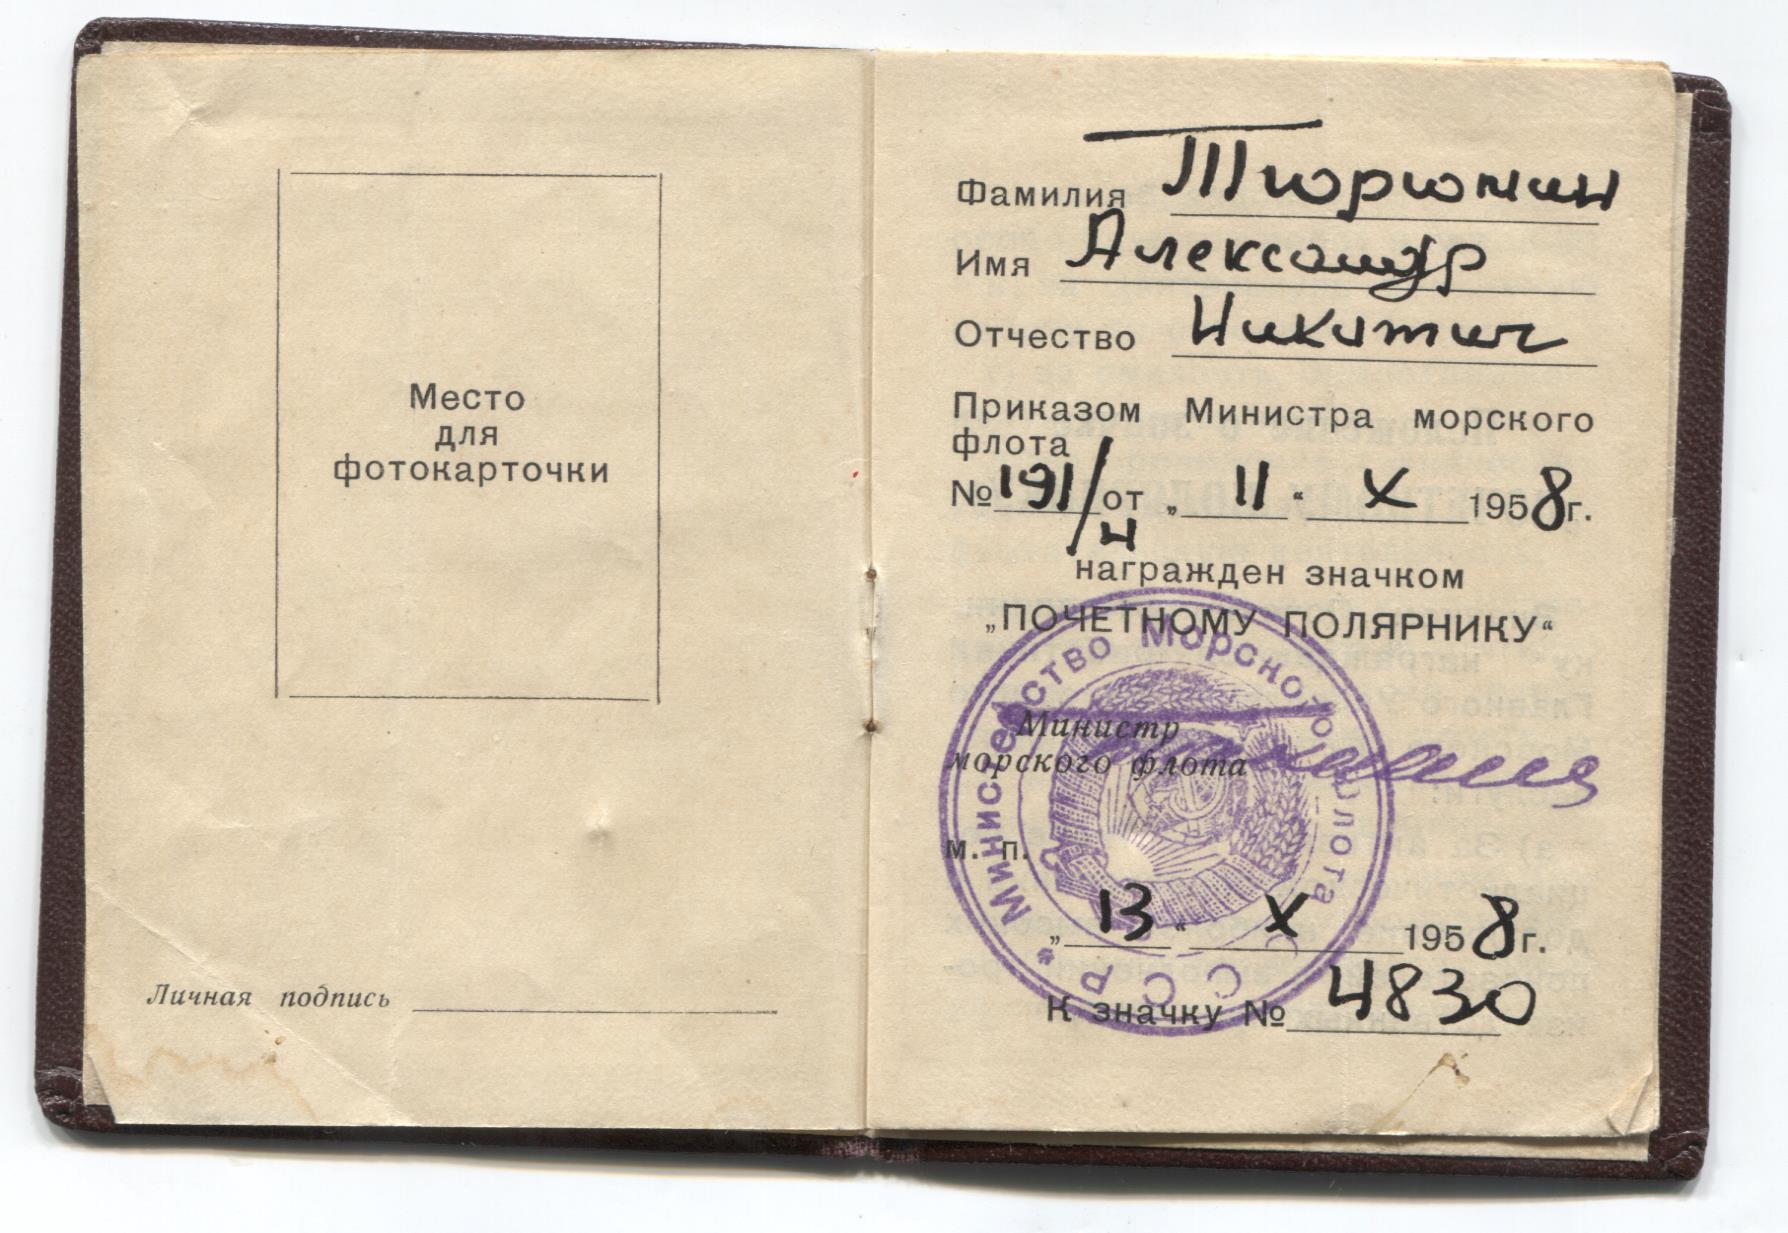 Место
для
фотокарточки
Личная подпись
Фамилия Тюрюмин
Имя Александр
Отчество Никитич
Приказом Министра морского
флота
№ 191/н от „ 11 “ X 1958 г.
награжден значком
„ПОЧЕТНОМУ ПОЛЯРНИКУ“
Министр
морского флота
Министерство Морского Флота
СССР
м. п.
„ 13 “ X 1958 г.
К значку № 4830